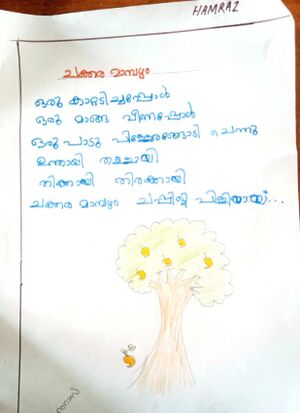 HAMRAZ
ചക്കര മാമ്പഴം
ഒരു കാറ്റടിച്ചപ്പോൾ
ഒരു മാങ്ങ വീണപ്പോൾ
ഒരു പാടു പിള്ളേരങ്ങോടി ചെന്നു
ഉന്തായി തള്ളായി
തിക്കായി തിരക്കായി
ചക്കര മാമ്പഴം പിളിയായ്...